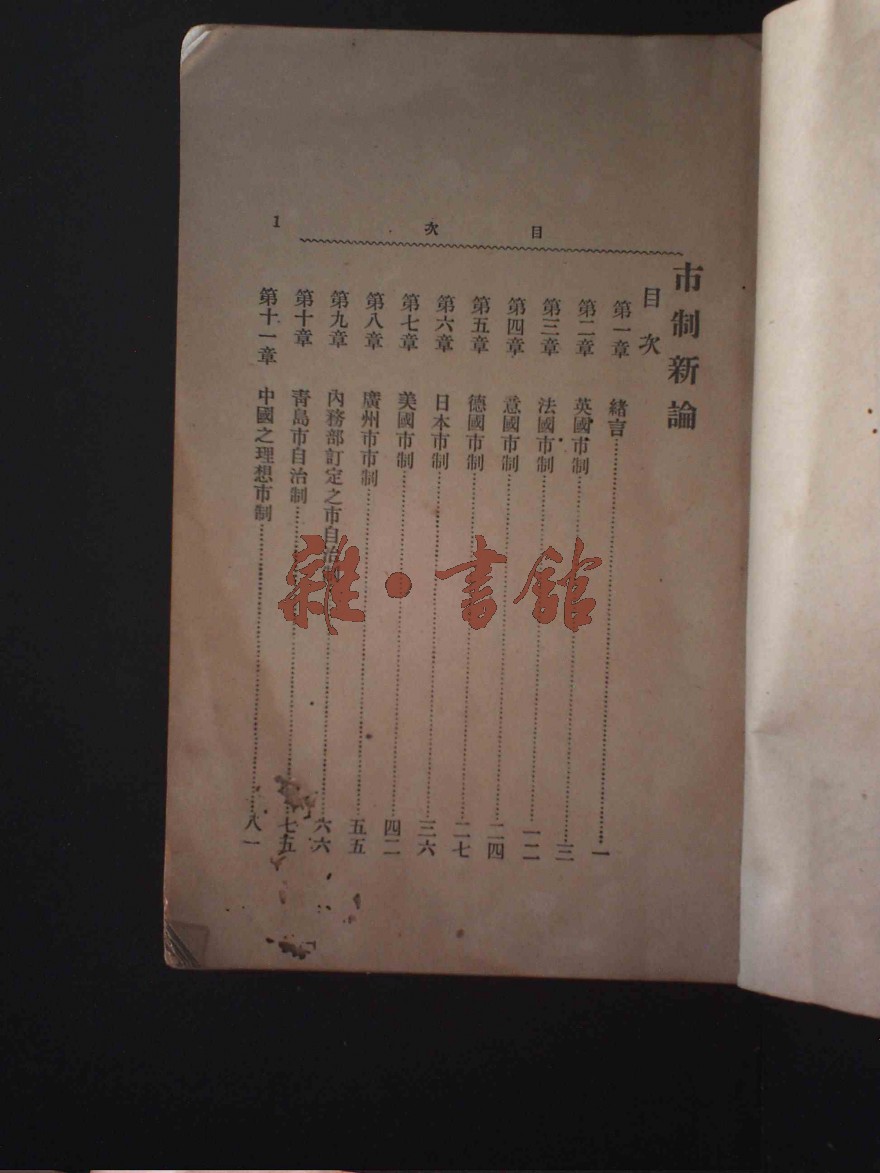 目次
1
市制新論
目次
第一章 緒言 一
第二章 英國市制 三
第三章 法國市制 一二
第四章 意國市制 二四
第五章 德國市制 二七
第六章 日本市制 三六
第七章 美國市制 四二
第八章 廣州市市制 五五
第九章 內務部訂定之市自治制 六六
第十章 青島市自治制 七五
第十一章 中國之理想市制 八一
雜·書館